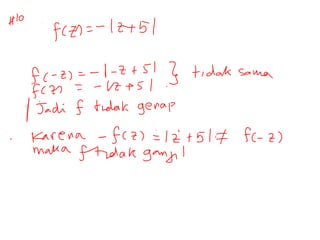 #10
f(z) = -|z+5|
f(-z) = -|-z+5| } tidak sama
f(z) = -|z+5|
Jadi f tidak genap
Karena -f(z) = |z+5| ≠ f(-z)
maka f tidak ganjil